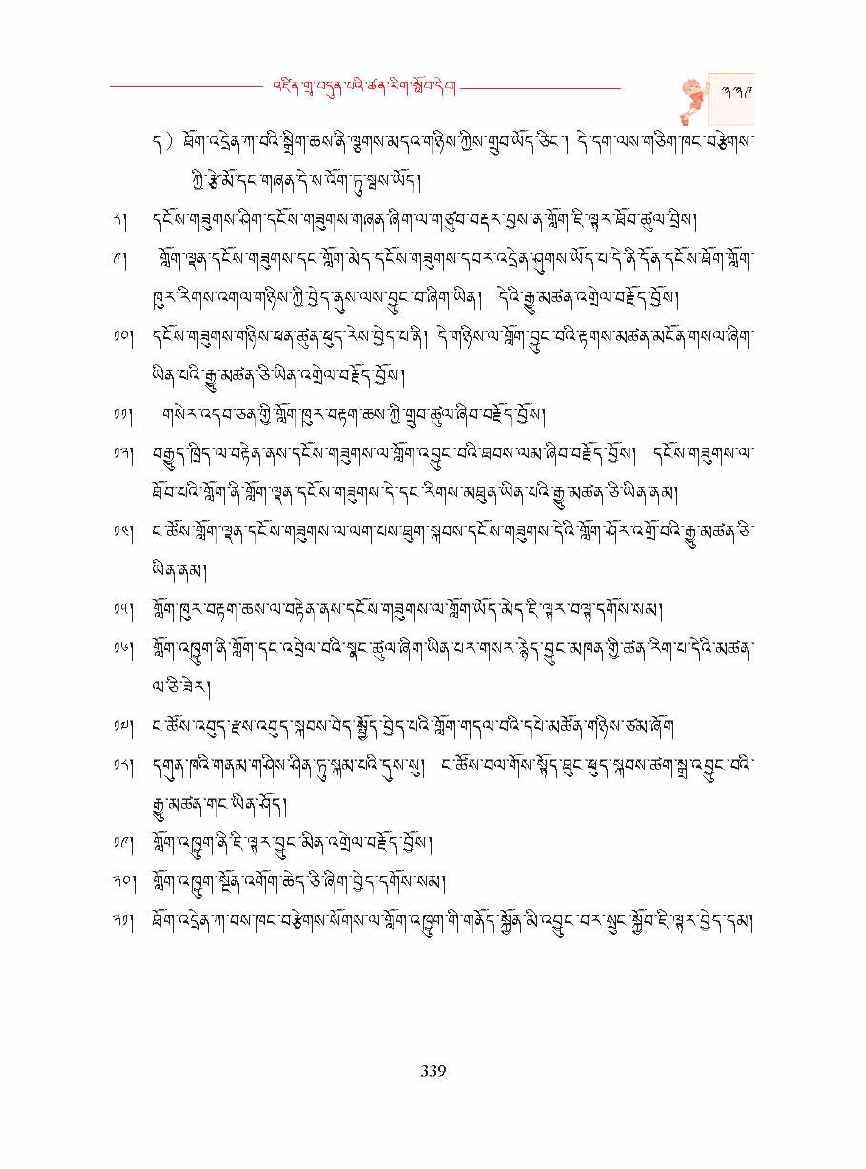 འཛིན་གྲྭ་བདུན་པའི་ཚན་རིག་སློབ་དེབ།
༣༣༩
ད༽ ཐོག་འདྲེན་ཀ་བའི་སྒྲིག་ཆས་ནི་ལྕགས་མདའ་གཉིས་ཀྱིས་གྲུབ་ཡོད་ཅིང་། དེ་དག་ལས་གཅིག་ཁང་བརྩེགས་
ཀྱི་རྩེ་མོ་དང་གཞན་དེ་ས་འོག་ཏུ་སྦས་ཡོད།
༨། དངོས་གཟུགས་ཤིག་དངོས་གཟུགས་གཞན་ཞིག་ལ་གཙུབ་བརྡར་བྱས་ན་གློག་ཇི་ལྟར་ཐོབ་ཚུལ་བྲིས།
༩། གློག་ལྡན་དངོས་གཟུགས་དང་གློག་མེད་དངོས་གཟུགས་དབར་འདྲེན་ཤུགས་ཡོད་པ་དེ་ནི་དོན་དངོས་ཐོག་གློག་
ཁུར་རིགས་འགལ་གཉིས་ཀྱི་བྱེད་ནུས་ལས་བྱུང་བ་ཞིག་ཡིན། དེའི་རྒྱུ་མཚན་འགྲེལ་བརྗོད་བྱོས།
༡༠། དངོས་གཟུགས་གཉིས་ཕན་ཚུན་ཕུད་རེས་བྱེད་པ་ནི། དེ་གཉིས་ལ་གློག་བྱུང་བའི་རྟགས་མཚན་མངོན་གསལ་ཞིག་
ཡིན་པའི་རྒྱུ་མཚན་ཅི་ཡིན་འགྲེལ་བརྗོད་བྱོས།
༡༡། གསེར་འདབ་ཅན་གྱི་གློག་ཁུར་བརྟག་ཆས་ཀྱི་གྲུབ་ཚུལ་ཞིབ་བརྗོད་བྱོས།
༡༣། བརྒྱུད་ཁྲིད་ལ་བརྟེན་ནས་དངོས་གཟུགས་ལ་གློག་འབྱུང་བའི་ཐབས་ལམ་ཞིབ་བརྗོད་བྱོས། དངོས་གཟུགས་ལ་
ཐོབ་པའི་གློག་ནི་གློག་ལྡན་དངོས་གཟུགས་དེ་དང་རིགས་མཐུན་ཡིན་པའི་རྒྱུ་མཚན་ཅི་ཡིན་ནམ།
༡༤། ང་ཚོས་གློག་ལྡན་དངོས་གཟུགས་ལ་ལག་པས་ཐུག་སྐབས་དངོས་གཟུགས་དེའི་གློག་ཤོར་འགྲོ་བའི་རྒྱུ་མཚན་ཅི་
ཡིན་ནམ།
༡༥། གློག་ཁུར་བརྟག་ཆས་ལ་བརྟེན་ནས་དངོས་གཟུགས་ལ་གློག་ཡོད་མེད་ཇི་ལྟར་བལྟ་དགོས་སམ།
༡༦། གློག་འཁྱུག་ནི་གློག་དང་འབྲེལ་བའི་སྣང་ཚུལ་ཞིག་ཡིན་པར་གསར་རྙེད་བྱུང་མཁན་གྱི་ཚན་རིག་པ་དེའི་མཚན་
ལ་ཅི་ཟེར།
༡༧། ང་ཚོས་འབུད་རྫས་འབུད་སྐབས་བེད་སྤྱོད་བྱེད་པའི་གློག་གདལ་བའི་དཔེ་མཚོན་གཉིས་ཙམ་ཞོག
༡༨། དགུན་ཁའི་གནམ་གཤིས་ཤིན་ཏུ་སྐམ་པའི་དུས་སུ། ང་ཚོས་བལ་གོས་སྟོད་ཐུང་ཕུད་སྐབས་ཚག་སྒྲ་འབྱུང་བའི་
རྒྱུ་མཚན་གང་ཡིན་ཤོད།
༡༩། གློག་འཁྱུག་ནི་ཇི་ལྟར་བྱུང་མིན་འགྲེལ་བརྗོད་བྱོས།
༢༠། གློག་འཁྱུག་སྔོན་འགོག་ཆེད་ཅི་ཞིག་བྱེད་དགོས་སམ།
༢༡། ཐོག་འདྲེན་ཀ་བས་ཁང་བརྩེགས་སོགས་ལ་གློག་འཁྱུག་གི་གནོད་སྐྱོན་མི་འབྱུང་བར་སྲུང་སྐྱོབ་ཇི་ལྟར་བྱེད་དམ།
339